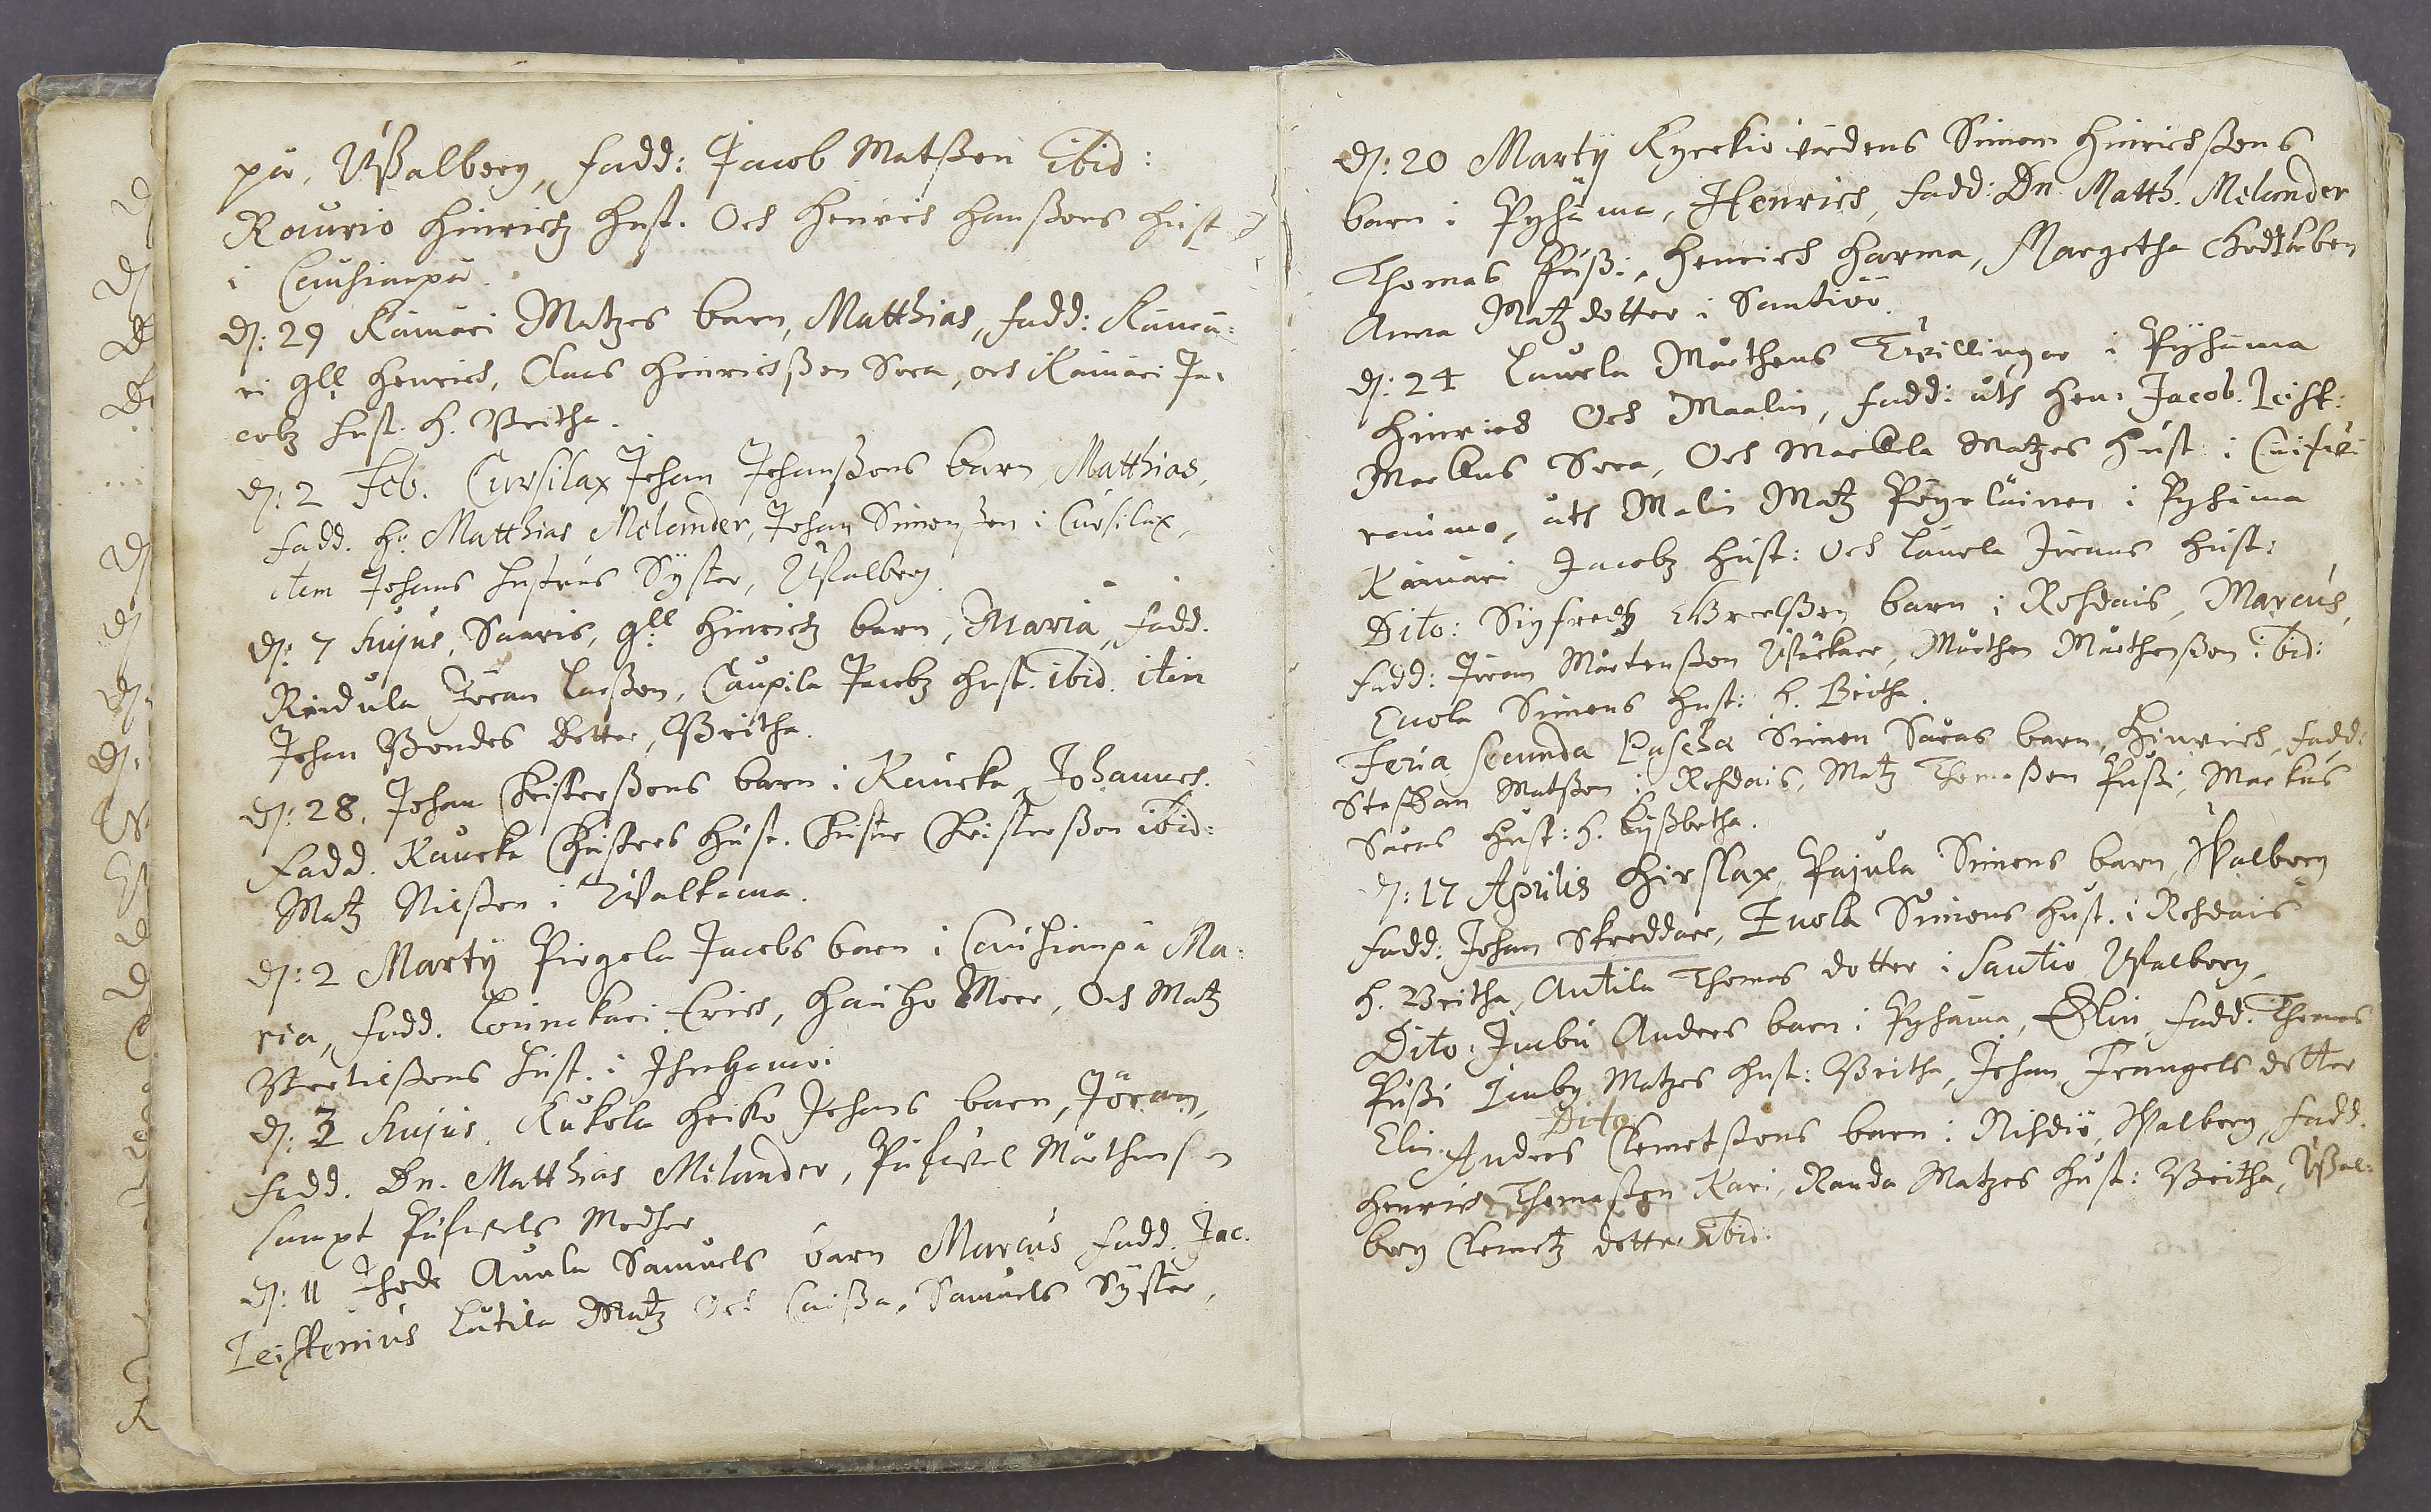 pä, Wßalborg, fadd: Jacob Matßon ibid:
Rourio Hinrichz Hust. Och Henrich Hanßons hust
i Cauhianpä.
D: 29 Kämäri Matzes barn, Matthias, fadd: Kämä-
ri gll Henrich, Claas Hinrichßon Sora, och Kämäri Ja-
cobz hust. h. Britha.
D: 2 Feb. Cursilax Johan Johanßons barn Matthias,
fadd. Hr Matthias Melander, Johan Simonson i Cursilax,
item Johans hustrus Syster, Walborg.
D: 7 hujus, Saaris, gll Hinrichz barn, Maria, fadd.
Rindula Jöran Larßon, Caupila Jacobz hust. ibid. item
Johan Bondes dotter, Britha.
D: 28, Johan Christerßons barn i Raucka, Johannes.
Fadd. Raucka Christers hust. Christer Christerßon ibid:
Matz Nilßon i Walkama.
D: 2 Martij Pirgola Jacobs barn i Cauhianpä Ma-
ria, fadd. Erich, Hauho Moor, Och Matz
Bertilßons hust. i Ihrhamo
D: 2 hujus. Kukola Heiko Johans barn, Jöran,
fadd. Dn. Matthias Melander, Mårthenson
sampt Modher
D: 11 Thode Auvla Samuels barn Marcus fadd. Jac.
Leistenius Lutila Matz Och Caißa, Samuels Syster,
D: 20 Martij Kyrckiovärdens Simon Hinrichßons
barn i Pyhäma, Henrich, fadd: Dn. Matth. Melander
Thomas Pußi, Henrich Harma, Margetha
Anna Matz dotter i Santioo.
D: 24 Lauvla Mårthens Twillingar i Pyhäma
Hinrich Och Maalin, fadd: åth Hen: Jacob. Leist:
Markus Sora, Och Markkla Matzes hust i
raumo, åth Malin Matz i Pyhäma
Kämäri Jacobz hust: Och Lauvla Jörans hust:
Dito: Sigfredz barn i Rohdais, Marcus,
fadd: Jöran Mårtenßon, Mårthen Mårthenßon ibid:
Euola Simons hust: h. Britha.
Feria secunda Paschæ Simon Såras barn, Hinrich, fadd:
Staffan Matßon i Rohdais, Matz Thomaßon Pußi, Markus
Såras hust: h. Lyßbetha.
D: 17 Aprilis Hirslax Pajula Simons barn Walborg
fadd: Johan Skreddare, Euola Simons hust. i Rohdais
h. Britha, Antila Thomas dotter i Santio Walborg,
Dito: Anders barn i Pyhäma, Elin, fadd. Thomas
Pußi Matzes hust: Britha, Johan dotter
Dito
Elin. Anders Clemetßons barn i Nihdiö, Walborg, fadd.
Henrich Thomaßon Kari, Randa Matzes hust: Britha, Wßal-
borg Clemetz dotter ibid: